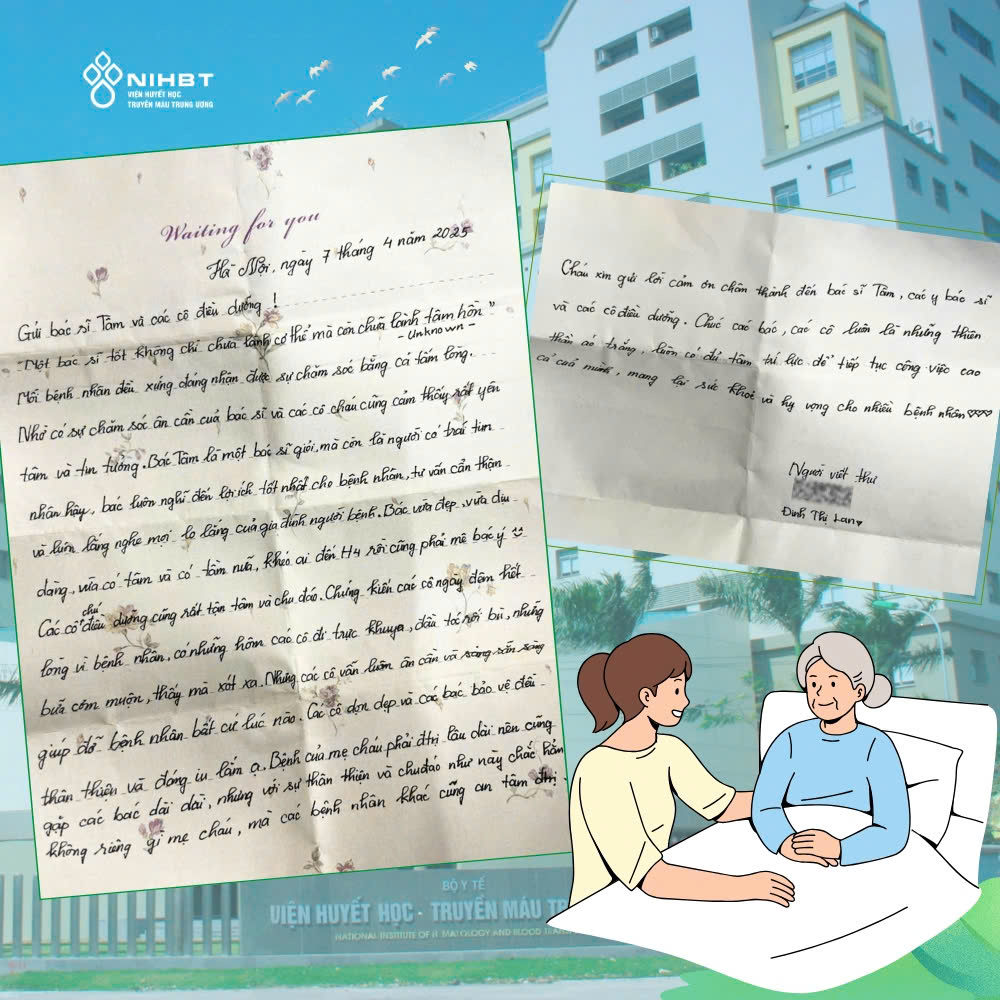 NIHBT
VIỆN HUYẾT HỌC
TRUYỀN MÁU TRUNG ƯƠNG
Waiting for you
Hà Nội, ngày 7 tháng 4 năm 2025
Gửi bác sĩ Tâm và các cô điều dưỡng!
"Một bác sĩ tốt không chỉ chữa lành cơ thể mà còn chữa lành tâm hồn"
- Unknown -
Mỗi bệnh nhân đều xứng đáng nhận được sự chăm sóc bằng cả tấm lòng.
Nhờ có sự chăm sóc ân cần của bác sĩ và các cô cháu cũng cảm thấy rất yên
tâm và tin tưởng. Bác Tâm là một bác sĩ giỏi, mà còn là người có trái tim
nhân hậu, bác luôn nghĩ đến lợi ích tốt nhất cho bệnh nhân, tư vấn cẩn thận
và luôn lắng nghe mọi lo lắng của gia đình người bệnh. Bác vừa đẹp, vừa dịu
dàng, vừa có tâm và có tầm nữa, khéo ai đến H4 rồi cũng phải mê bác ý
Các cô chú điều dưỡng cũng rất tận tâm và chu đáo. Chứng kiến các cô ngày đêm hết
lòng vì bệnh nhân, có những hôm các cô đi trực khuya, đầu tóc rối bù, những
bữa cơm muộn, thấy mà xót xa. Nhưng các cô vẫn luôn ân cần và sẵn sàng
giúp đỡ bệnh nhân bất cứ lúc nào. Các cô dọn dẹp và các bác bảo vệ đều
thân thiện và đáng iu lắm ạ. Bệnh của mẹ cháu phải đtrị lâu dài nên cũng
gặp các bác dài dài, nhưng với sự thân thiện và chu đáo như này chắc hẳn
không riêng gì mẹ cháu, mà các bệnh nhân khác cũng an tâm đtrị.
Cháu xin gửi lời cảm ơn chân thành đến bác sĩ Tâm, các y bác sĩ
và các cô điều dưỡng. Chúc các bác, các cô luôn là những thiên
thần áo trắng, luôn có đủ tâm trí lực để tiếp tục công việc cao
cả của mình, mang lại sức khoẻ và hy vọng cho nhiều bệnh nhân ♡♡♡
Người viết thư
Đinh Thị Lan
BỘ Y TẾ
VIỆN HUYẾT HỌC - TRUYỀN MÁU
NATIONAL INSTITUTE OF HEMATOLOGY AND BLOOD